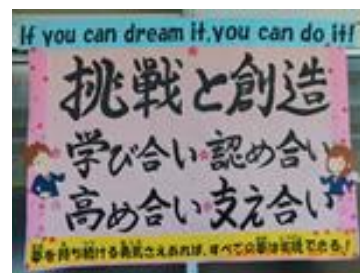 If you can dream it, you can do it!
挑戦と創造
学び合い 認め合い
高め合い 支え合い
夢を持ち続ける勇気さえあれば、すべての夢は実現できる!